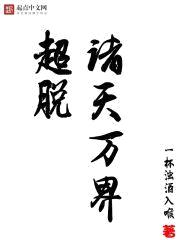 起点中文网
诸天万界
超脱
一杯浊酒入喉 著